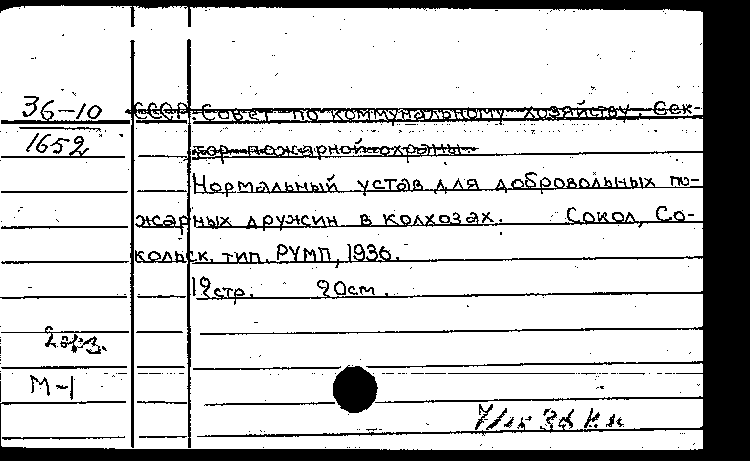 36-10
1652
СССР. Совет по коммунальному хозяйству. Сек-
тор пожарной охраны.
Нормальный устав для добровольных по-
жарных дружин в колхозах. Сокол, Со-
кольск. тип. РУМП, 1936.
12стр. 20см.
2 экз.
М-1